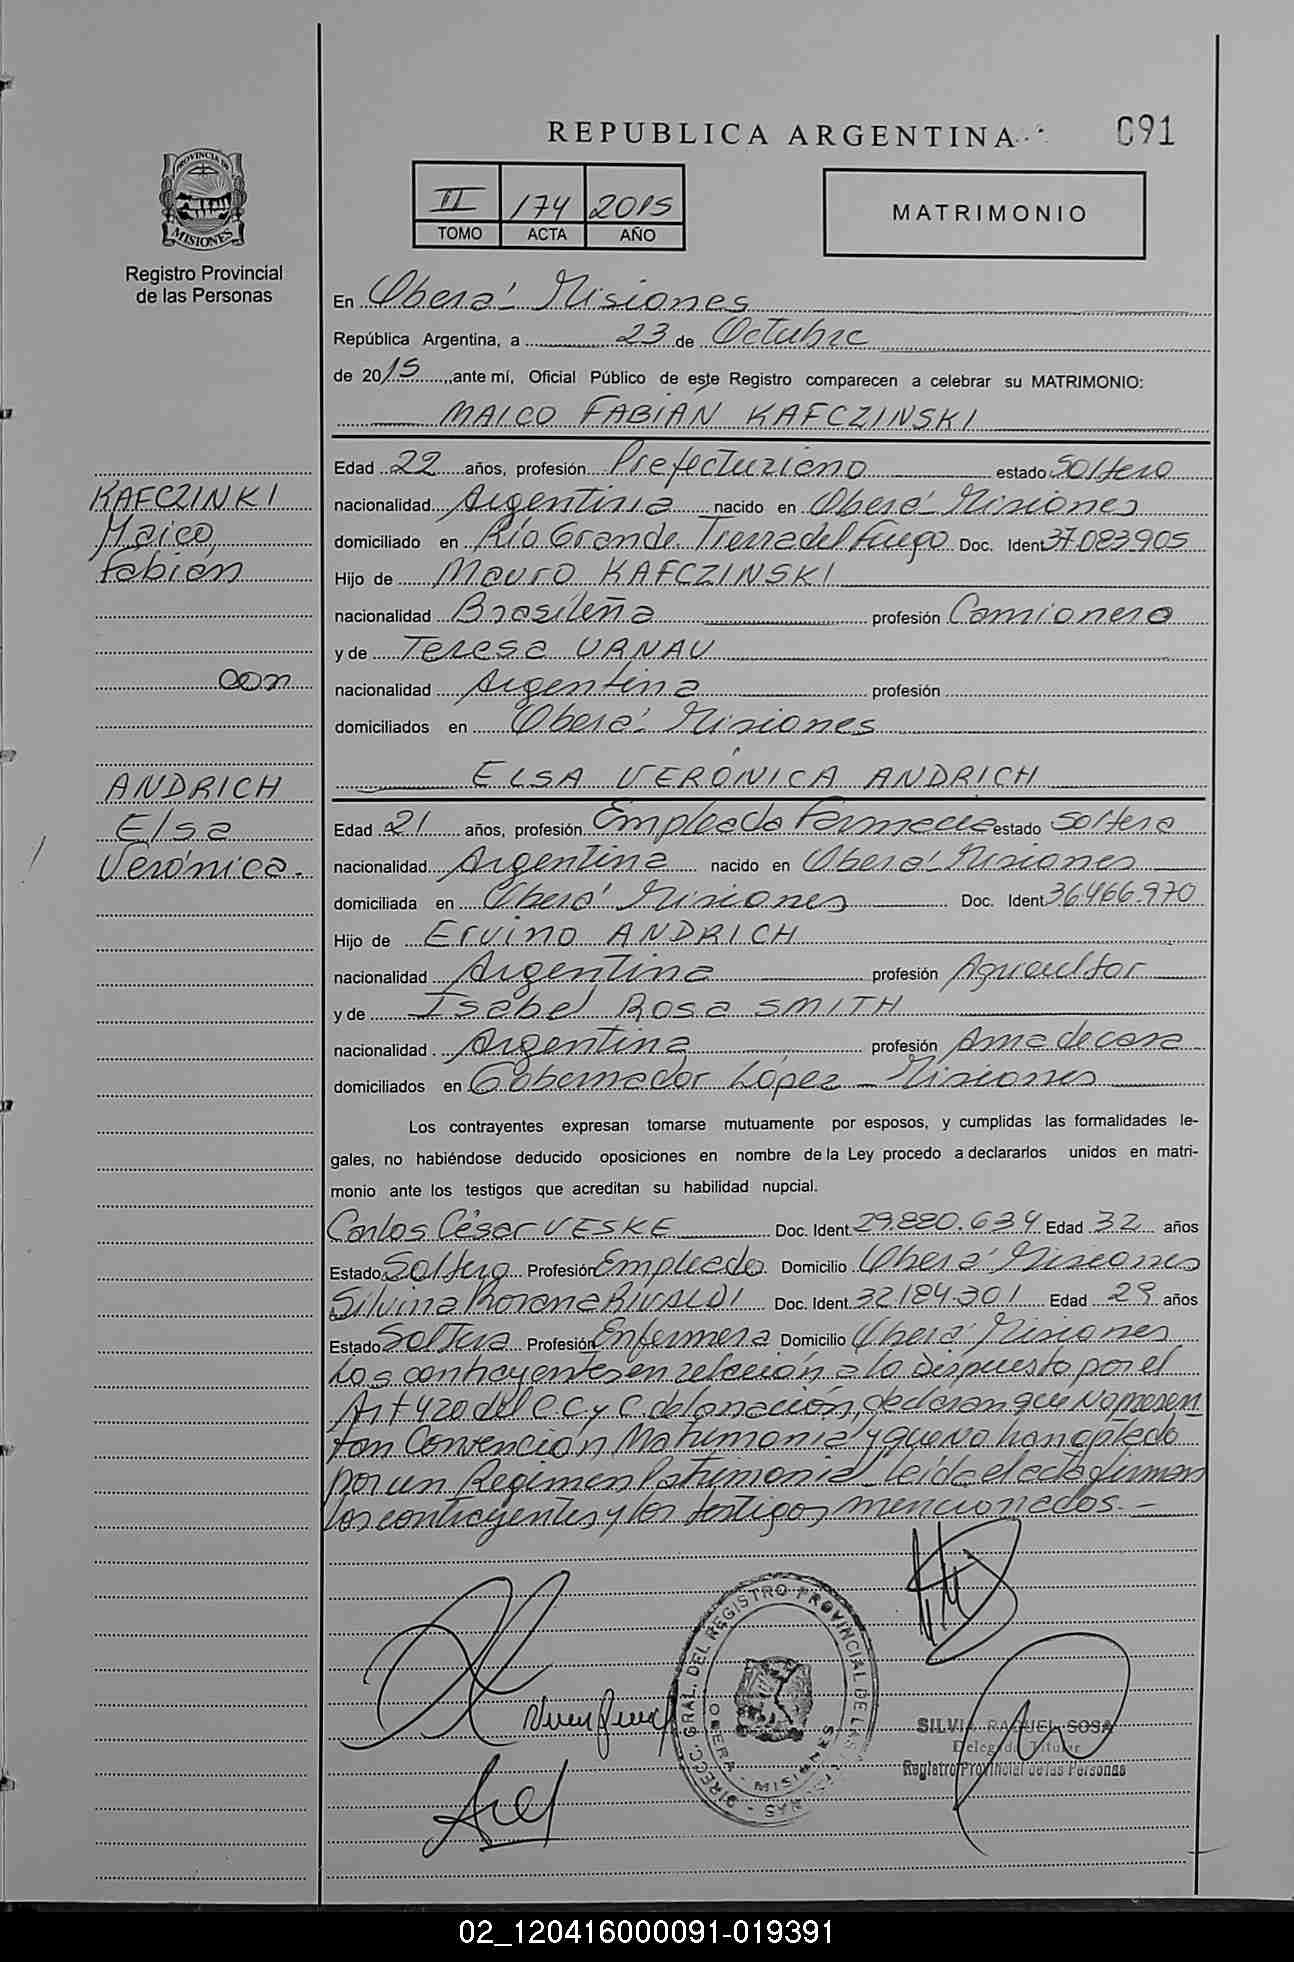 REPUBLICA ARGENTINA
091
II 174 2015
TOMO ACTA AÑO
MATRIMONIO
PROVINCIA DE
MISIONES
Registro Provincial
de las Personas
En Oberá - Misiones
República Argentina, a 23 de Octubre
de 2015, ante mí, Oficial Público de este Registro comparecen a celebrar su MATRIMONIO:
MAICO FABIÁN KAFCZINSKI
Edad 22 años, profesión Prefecturiano estado Soltero
nacionalidad Argentina nacido en Oberá - Misiones
domiciliado en Río Grande. Tierra del Fuego Doc. Ident 37.083.905
Hijo de Mauro KAFCZINSKI
nacionalidad Brasileña profesión Camionero
y de Teresa URNAU
nacionalidad Argentina profesión
domiciliados en Oberá - Misiones
ELSA VERÓNICA ANDRICH
Edad 21 años, profesión Empleada Farmacia estado Soltera
nacionalidad Argentina nacido en Oberá - Misiones
domiciliada en Oberá Misiones Doc. Ident 36.466.970
Hijo de Ervino ANDRICH
nacionalidad Argentina profesión Agricultor
y de Isabel Rosa SMITH
nacionalidad Argentina profesión Ama de casa
domiciliados en Gobernador López - Misiones
Los contrayentes expresan tomarse mutuamente por esposos, y cumplidas las formalidades le-
gales, no habiéndose deducido oposiciones en nombre de la Ley procedo a declararlos unidos en matri-
monio ante los testigos que acreditan su habilidad nupcial.
Carlos César VESKE Doc. Ident. 29.880.634 Edad 32 años
Estado Soltero Profesión Empleado Domicilio Oberá Misiones
Silvina Rorana RIVALDI Doc. Ident. 32.184.301 Edad 29 años
Estado Soltera Profesión Enfermera Domicilio Oberá Misiones
Los contrayentes en relación a lo dispuesto por el
Art 420 del C.C y C. de la nación, declaran que No presen
tan Convención Matrimonial y que No han optado
por un Regimen Patrimonial leída el acta firman
los contrayentes y los testigos mencionados. -
KAFCZINKI
Maico
Fabián
con
ANDRICH
Elsa
Verónica.
DIREC. GRAL. DEL REGISTRO PROVINCIAL DE LAS PERSONAS
OBERA - MISIONES
SILVIA RAQUEL SOSA
Delegada Titular
Registro Provincial de las Personas
02_120416000091-019391